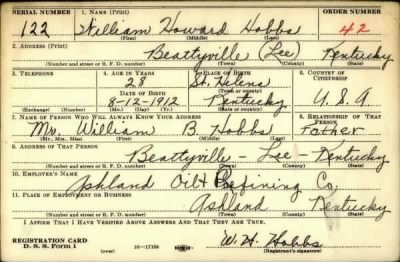 SERIAL NUMBER 1. NAME (Print) ORDER NUMBER
122 William Howard Hobbs 42
(First) (Middle) (Last)
2. ADDRESS (Print)
Beattyville (Lee) Kentucky
(Number and street or R. F. D. number) (Town) (County) (State)
3. TELEPHONE 4. AGE IN YEARS 5. PLACE OF BIRTH 6. COUNTRY OF CITIZENSHIP
28 St. Helens
DATE OF BIRTH
8-12-1912 Kentucky U.S.A
(Exchange) (Number) (Mo.) (Day) (Yr.) (State or country)
7. NAME OF PERSON WHO WILL ALWAYS KNOW YOUR ADDRESS 8. RELATIONSHIP OF THAT PERSON
Mr William B Hobbs Father
(Mr., Mrs., Miss) (First) (Middle) (Last)
9. ADDRESS OF THAT PERSON
Beattyville - Lee - Kentucky
(Number and street or R. F. D. number) (Town) (County) (State)
10. EMPLOYER'S NAME
Ashland Oil & Refining Co,
11. PLACE OF EMPLOYMENT OR BUSINESS
Ashland Kentucky
(Number and street or R. F. D. number) (Town) (County) (State)
I AFFIRM THAT I HAVE VERIFIED ABOVE ANSWERS AND THAT THEY ARE TRUE.
REGISTRATION CARD
D. S. S. Form 1 (over) 16-17105 W. H. Hobbs
(Registrant's signature)